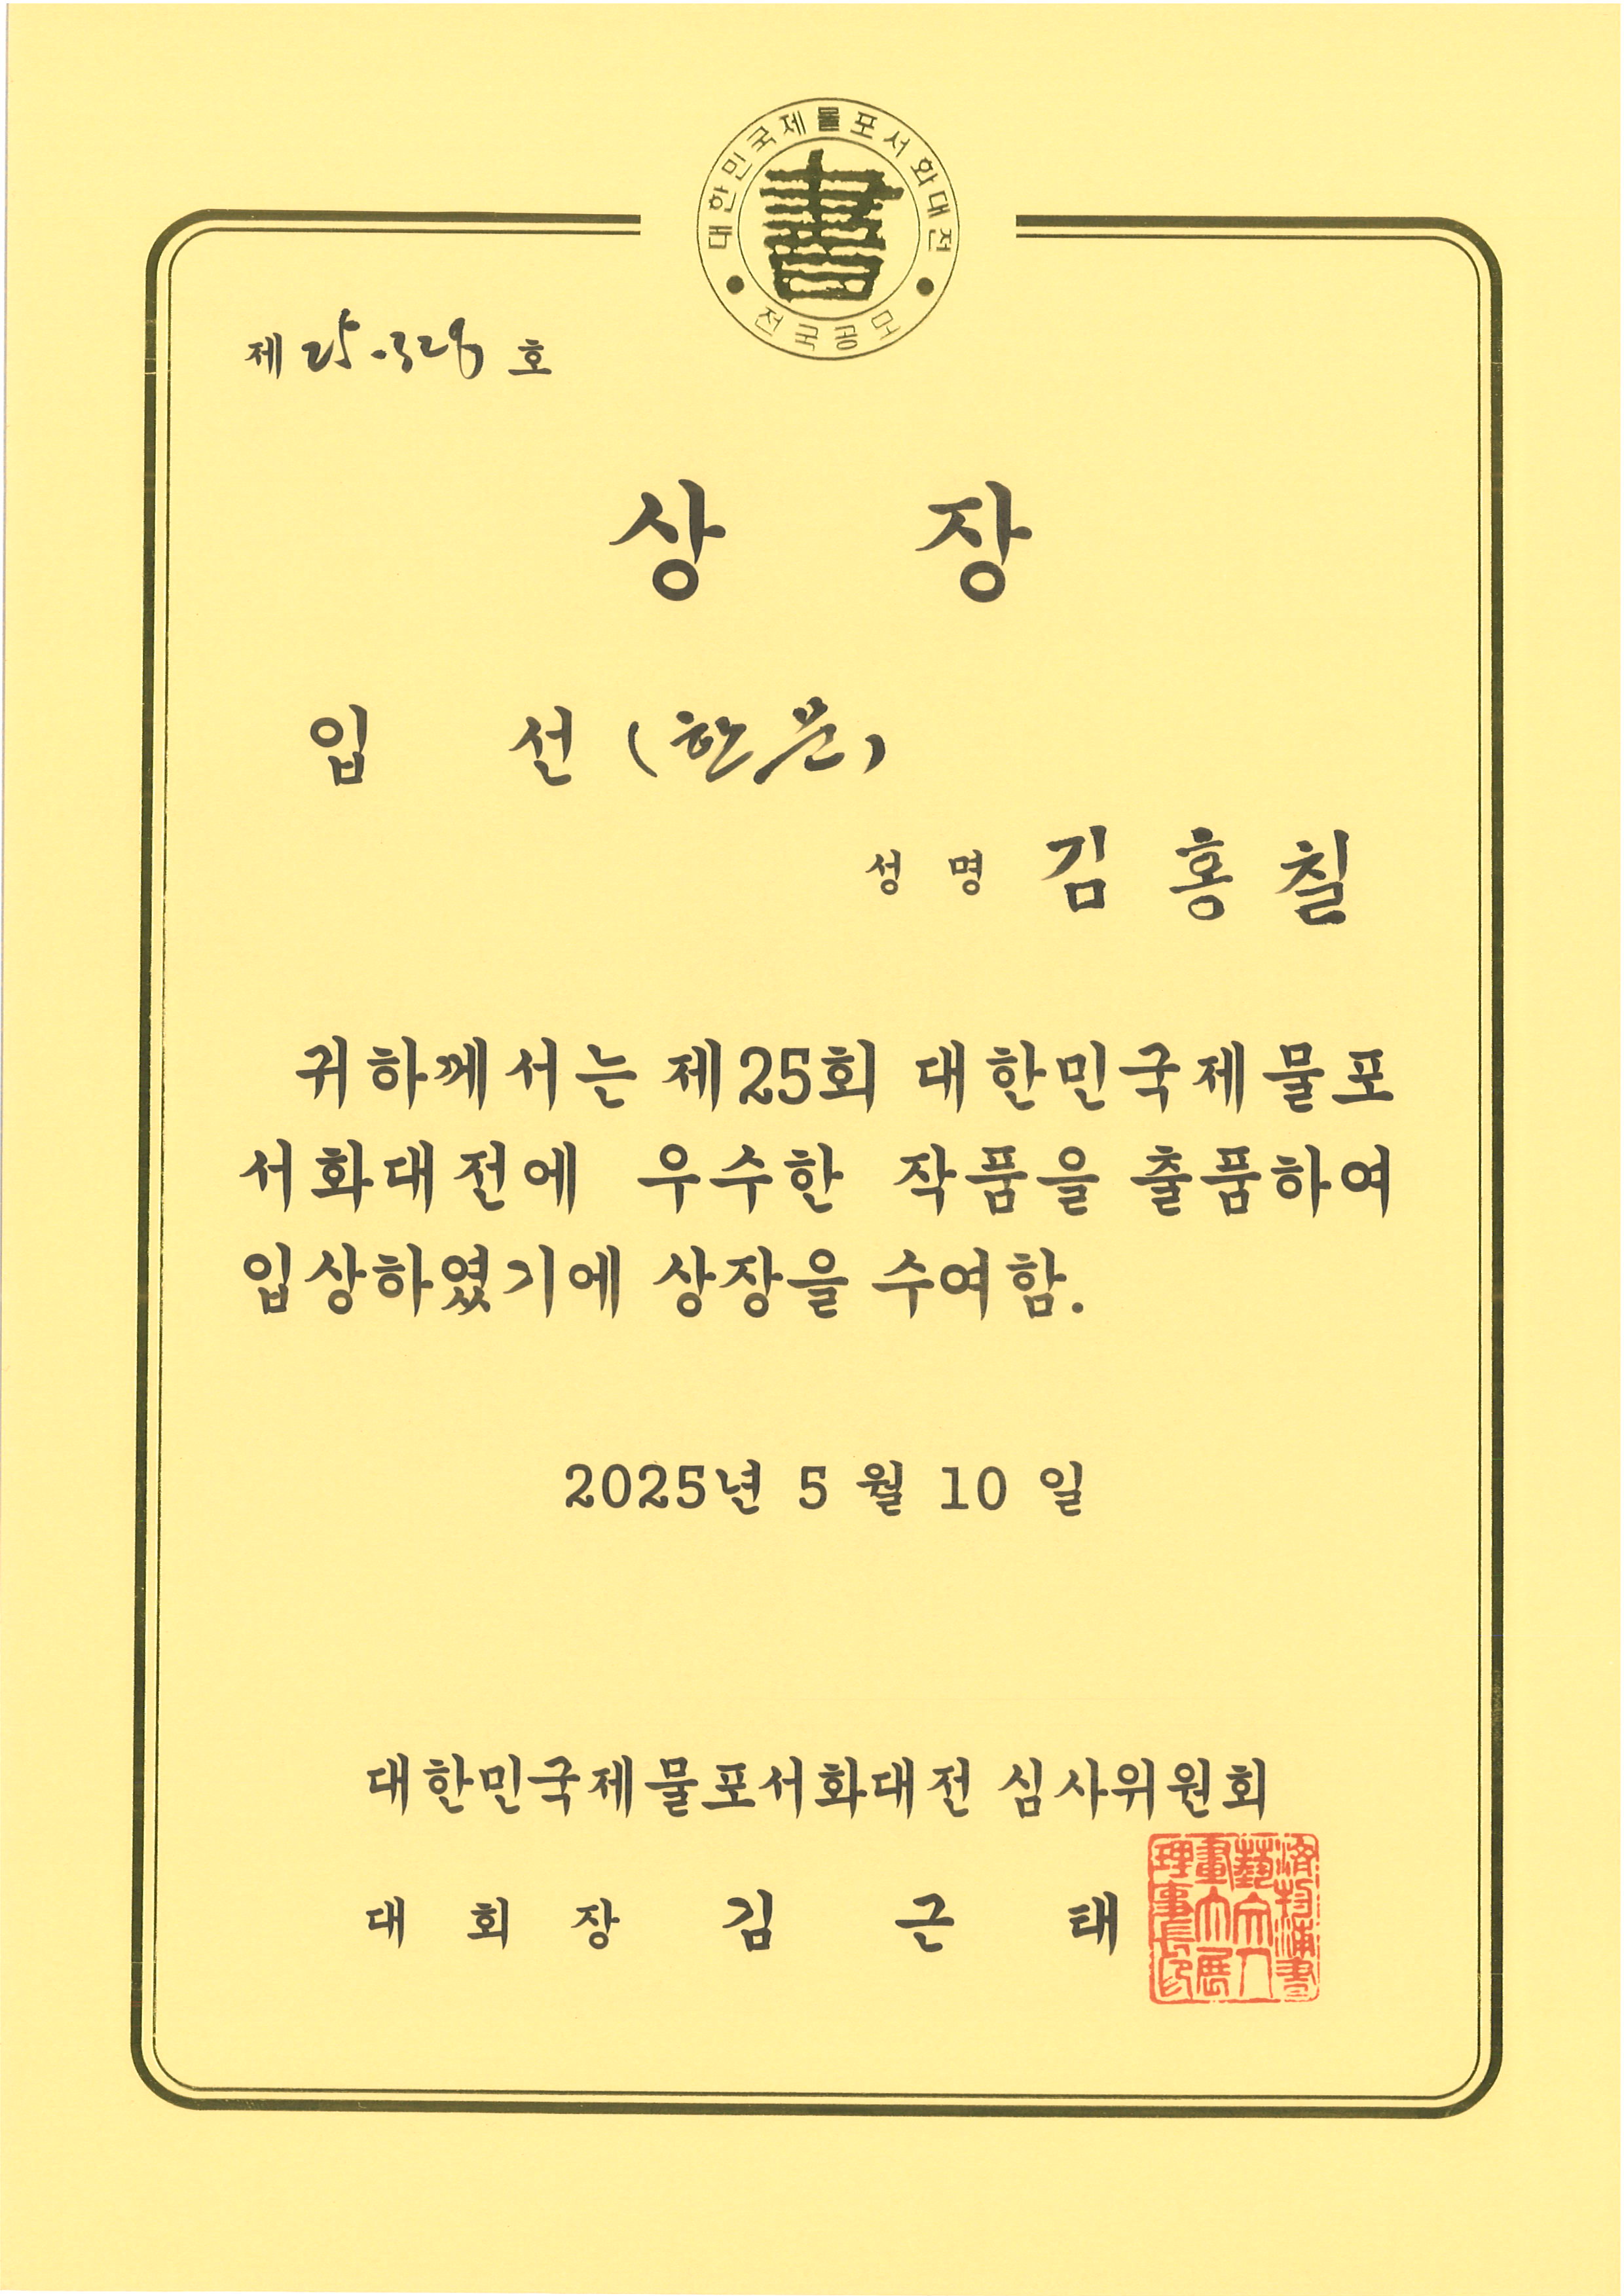 대한민국제물포서화대전
書
전국공모
제 25-328 호
상 장
입 선 (한문)
성 명 김 홍 칠
귀하께서는 제25회 대한민국제물포
서화대전에 우수한 작품을 출품하여
입상하였기에 상장을 수여함.
2025년 5 월 10 일
대한민국제물포서화대전 심사위원회
대 회 장 김 근 태